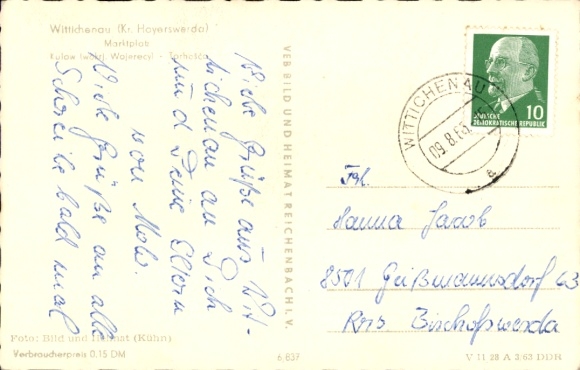 Wittichenau (Kr. Hoyerswerda)
Marktplatz
Kulow (wokrj. Wojerecy) - Torhošćo
Viele Grüße aus Wit-
tichenau an Dich
und Deine Eltern
von Melo.
Viele Grüße an alle
Schreibe bald mal
VEB BILD UND HEIMAT REICHENBACH I. V.
WITTICHENAU
09.8.63
a
10
DEUTSCHE
DEMOKRATISCHE REPUBLIK
Frl.
Hanna Jacob
8501 Geißmannsdorf 63
Krs Bischofswerda
Foto: Bild und Heimat (Kühn)
Verbraucherpreis 0,15 DM
6/837
V 11 28 A 3/63 DDR